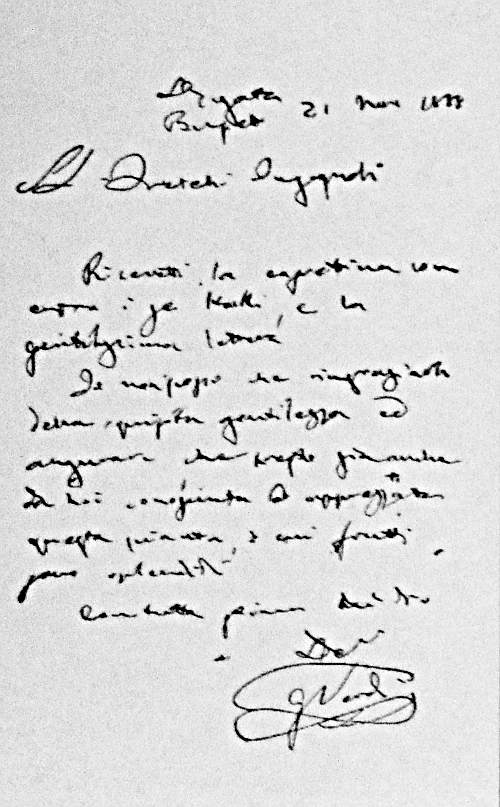 S. Agata
Busseto 21 Nov 1888
Fratelli Ingegnoli
Ricevetti la cassettina con
entro i Kaki, e la
gentilissima lettera
Io non posso che ringraziarla
della squisita gentilezza ed
augurare che presto
da noi conosciuta ed apprezzata
questa pianta, i cui frutti
sono splendidi
Con tutta stima mi dico
Dev
G Verdi